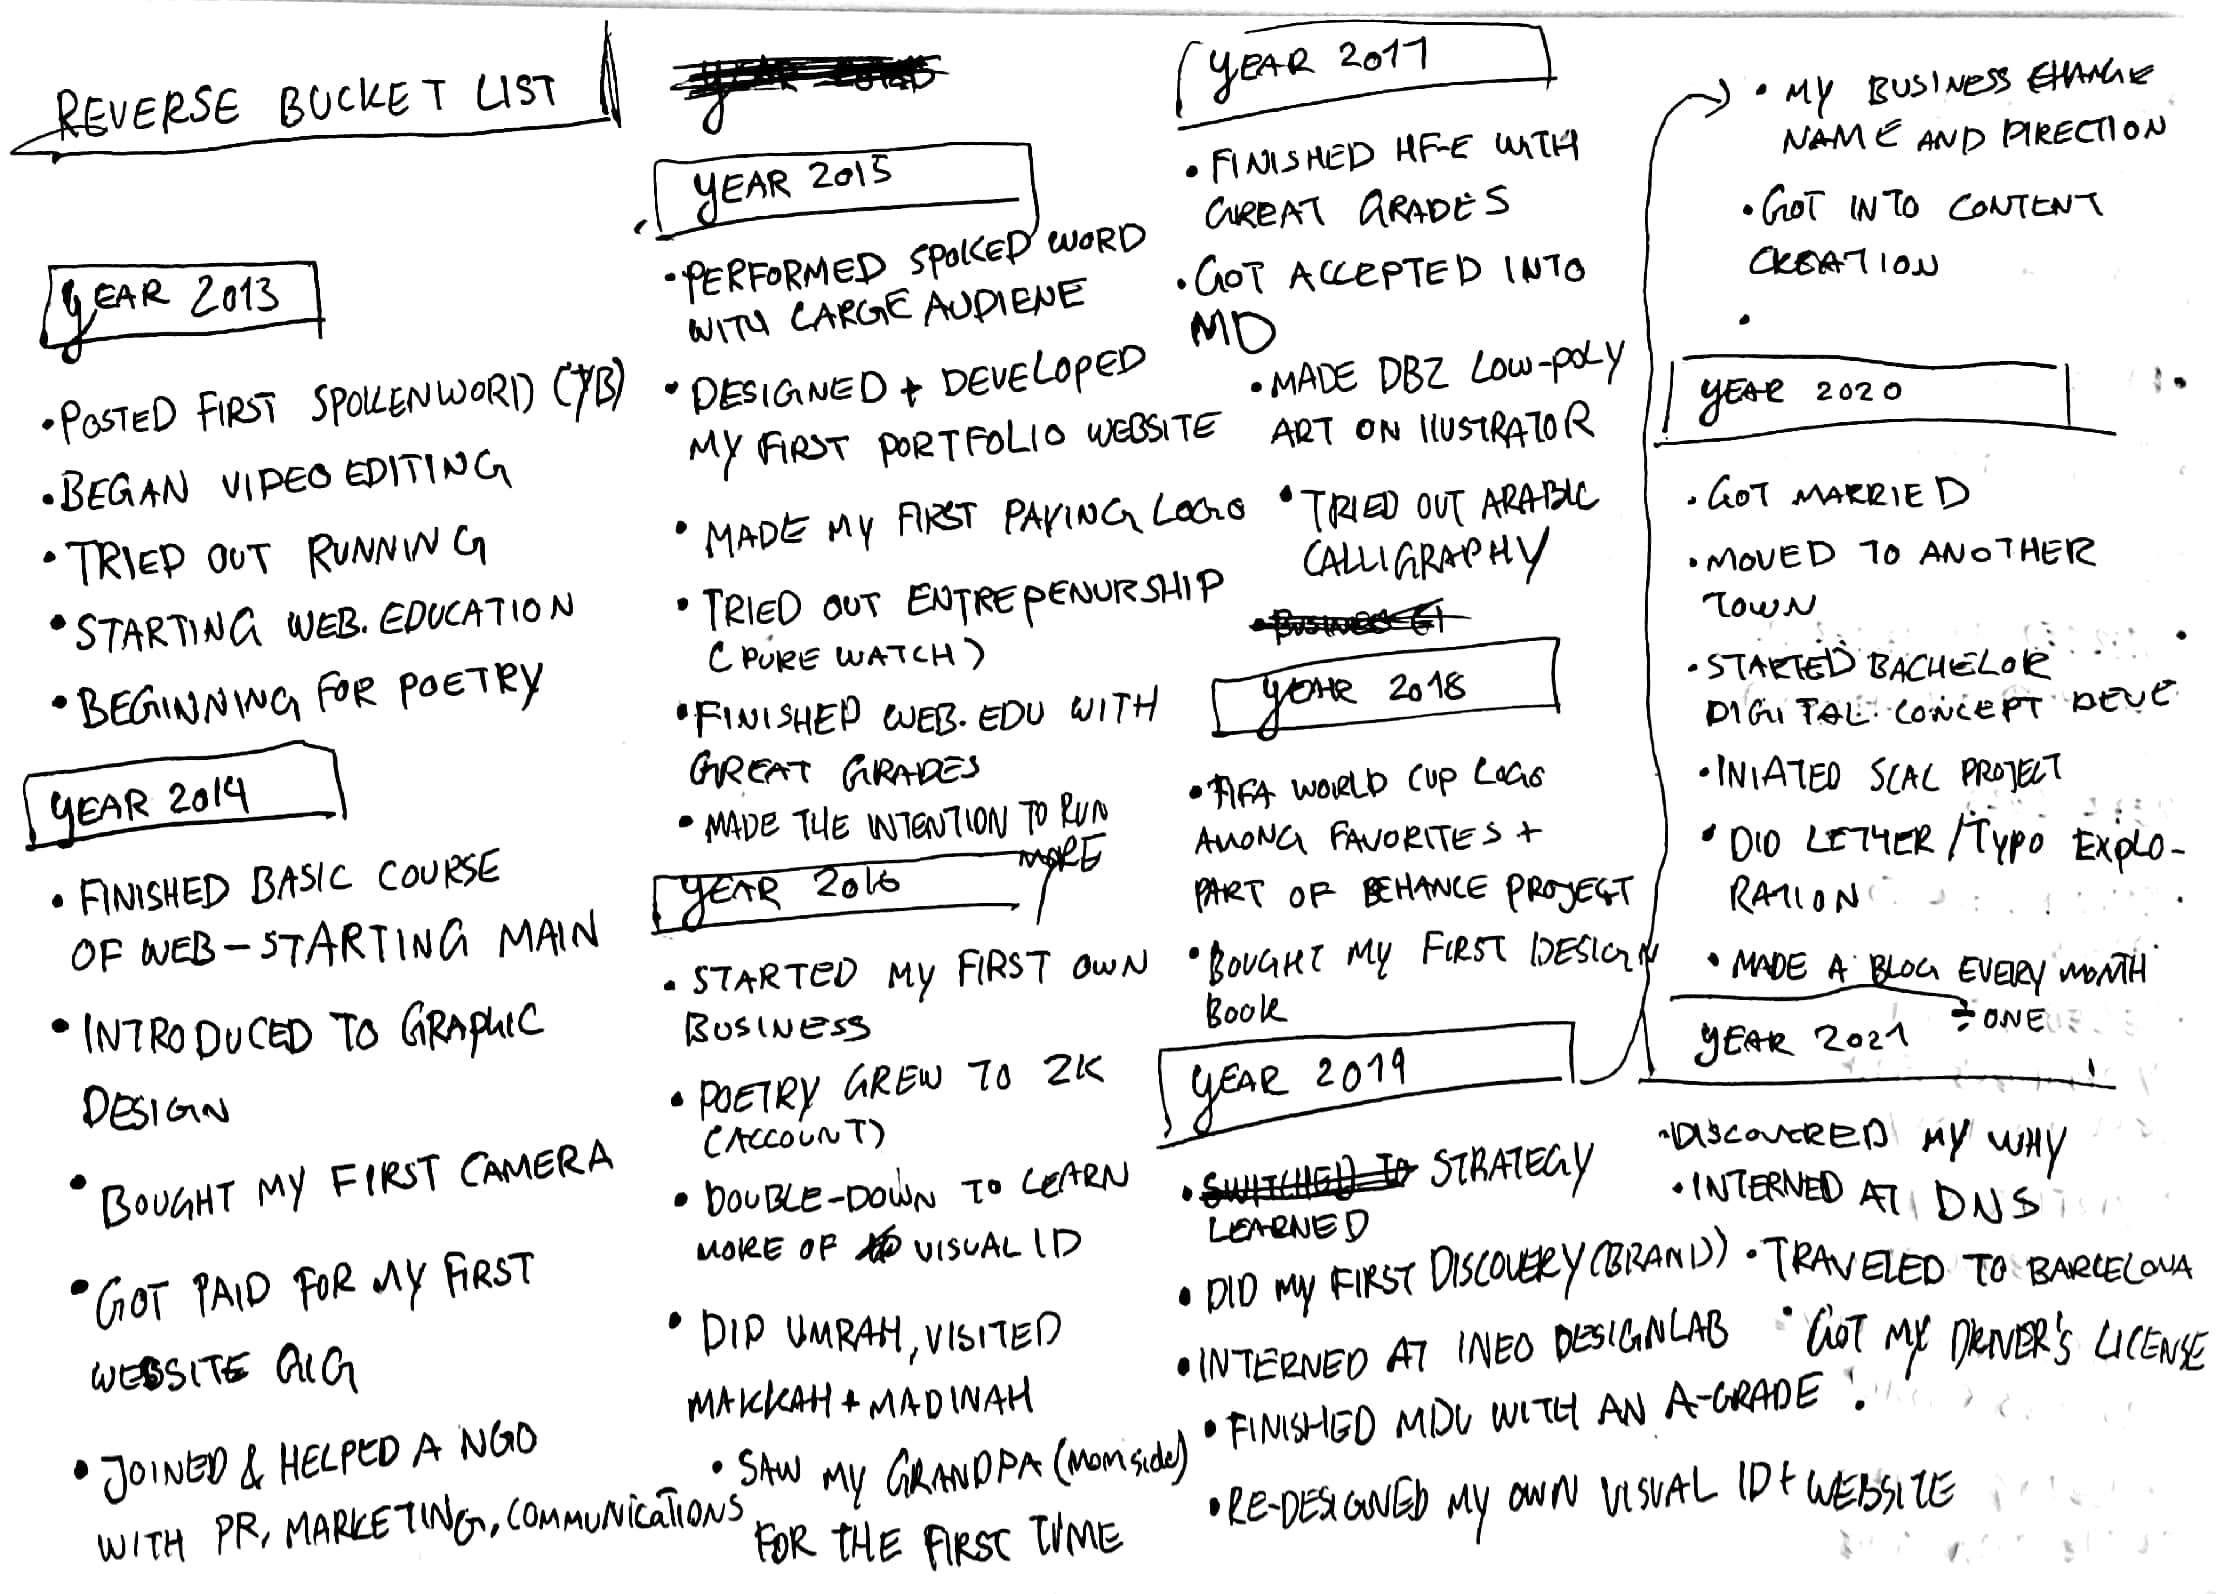 REVERSE BUCKET LIST
YEAR 2013
• POSTED FIRST SPOKENWORD (YB)
• BEGAN VIDEO EDITING
• TRIED OUT RUNNING
• STARTING WEB. EDUCATION
• BEGINNING FOR POETRY
YEAR 2014
• FINISHED BASIC COURSE
OF WEB – STARTING MAIN
• INTRODUCED TO GRAPHIC
DESIGN
• BOUGHT MY FIRST CAMERA
• GOT PAID FOR MY FIRST
WEBSITE GIG
• JOINED & HELPED A NGO
WITH PR, MARKETING, COMMUNICATIONS
YEAR 2015
• PERFORMED SPOKED WORD
WITH LARGE AUDIENE
• DESIGNED + DEVELOPED
MY FIRST PORTFOLIO WEBSITE
• MADE MY FIRST PAYING LOGO
• TRIED OUT ENTREPENURSHIP
(PURE WATCH)
• FINISHED WEB. EDU WITH
GREAT GRADES
• MADE THE INTENTION TO RUN
MORE
YEAR 2016
• STARTED MY FIRST OWN
BUSINESS
• POETRY GREW TO 2K
(ACCOUNT)
• DOUBLE-DOWN TO LEARN
MORE OF VISUAL ID
• DID UMRAH, VISITED
MAKKAH + MADINAH
• SAW MY GRANDPA (Mom side)
FOR THE FIRST TIME
YEAR 2017
• FINISHED HF-E WITH
GREAT GRADES
• GOT ACCEPTED INTO
MD
• MADE DBZ LOW-POLY
ART ON IIUSTRATOR
• TRIED OUT ARABIC
CALLIGRAPHY
• BUSINESS
YEAR 2018
• FIFA WORLD CUP LOGO
AMONG FAVORITES +
PART OF BEHANCE PROJECT
• BOUGHT MY FIRST DESIGN
BOOK
YEAR 2019
• SWITCHED TO STRATEGY
LEARNED
• DID MY FIRST DISCOVERY (BRAND)
• INTERNED AT INEO DESIGNLAB
• FINISHED MDU WITH AN A-GRADE
• RE-DESIGNED MY OWN VISUAL ID + WEBSITE
• MY BUSINESS CHANGE
NAME AND DIRECTION
• GOT INTO CONTENT
CREATION
•
YEAR 2020
• GOT MARRIED
• MOVED TO ANOTHER
TOWN
• STARTED BACHELOR
DIGITAL. CONCEPT DEVE
• INIATED SCAL PROJECT
• DID LETTER / TYPO EXPLO-
RATION
• MADE A BLOG EVERY MONTH
÷ ONE
YEAR 2021
• DISCOVERED MY WHY
• INTERNED AT DNS
• TRAVELED TO BARCELONA
• GOT MY DRIVER'S LICENSE